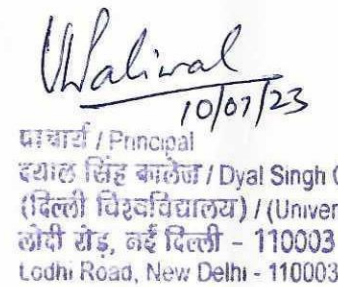 VKPaliwal
10/07/23
प्राचार्य / Principal
दयाल सिंह कालेज / Dyal Singh C
(दिल्ली विश्वविद्यालय) / (Univer
लोदी रोड़, नई दिल्ली - 110003
Lodhi Road, New Delhi - 110003